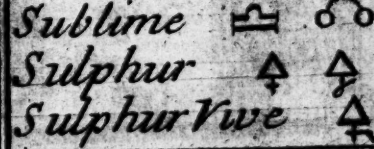 Sublime
Sulphur
Sulphur Vive